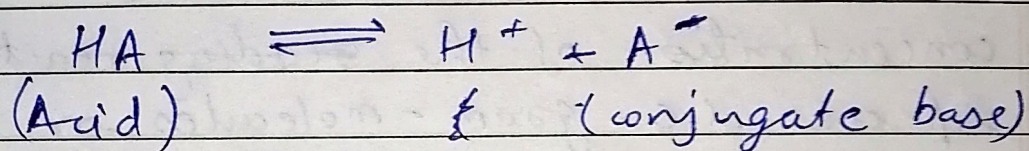 HA ⇌ H⁺ + A⁻
(Acid) (conjugate base)